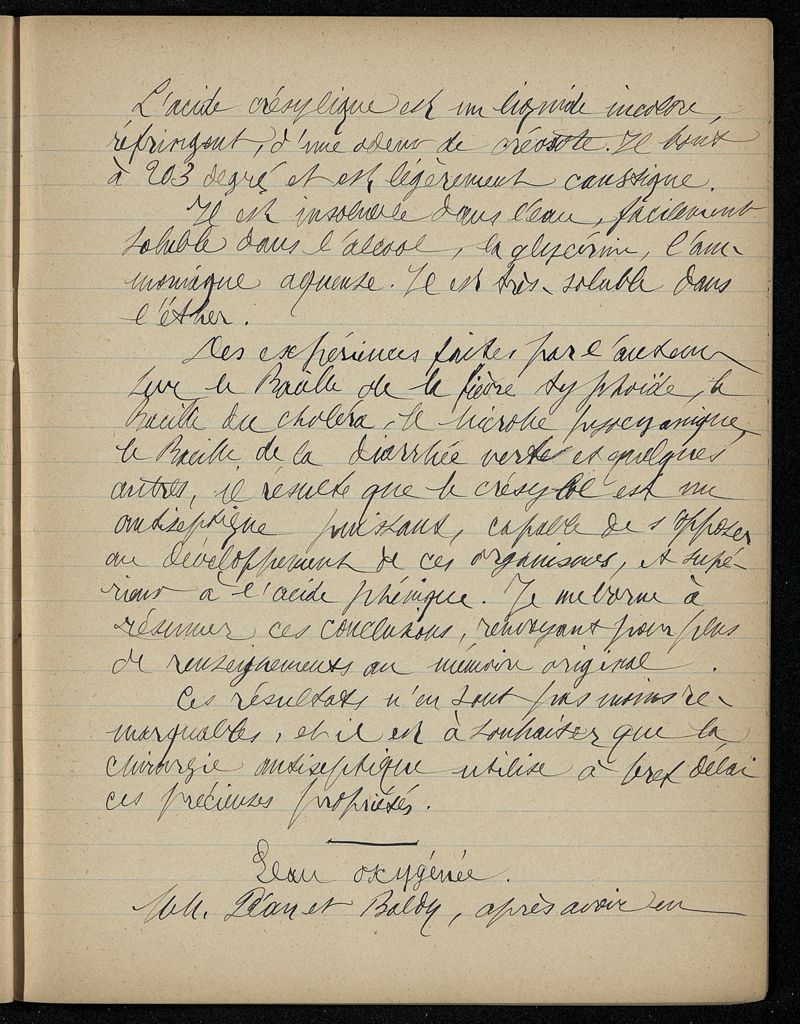 L'acide crésylique est un liquide incolore,
réfringent, d'une odeur de créosote. Il bout
à 203 degré et est légèrement caustique.
Il est insoluble dans l'eau, facilement
soluble dans l'alcool, la glycérine, l'am-
moniaque aqueuse. Il est très-soluble dans
l'éther.
Des expériences faites par l'auteur
sur le Bacille de la fièvre typhoïde, le
Bacille du choléra, le microbe pyocyanique,
le Bacille de la diarrhée verte et quelques
autres, il résulte que le crésylol est un
antiseptique puissant, capable de s'opposer
au développement de ces organismes, et supé-
rieur à l'acide phénique. Je me borne à
résumer ces conclusions, renvoyant pour plus
de renseignements au mémoire original.
Ces résultats n'en sont pas moins re-
marquables, et il est à souhaiter que la
chirurgie antiseptique utilise à bref délai
ces précieuses propriétés.
L'eau oxygénée.
MM. Péan et Baldy, après avoir en